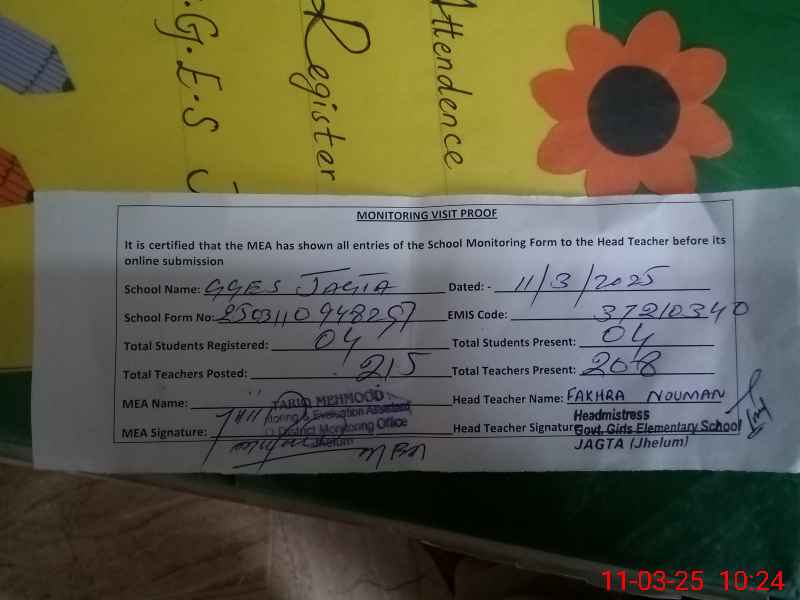 Attendence
Register
.G.E.S J
MONITORING VISIT PROOF
It is certified that the MEA has shown all entries of the School Monitoring Form to the Head Teacher before its
online submission
School Name: GGES JAGTA Dated: - 11/3/2025
School Form No: EMIS Code: 37210340
Total Students Registered: 04 Total Students Present: 04
Total Teachers Posted: 215 Total Teachers Present: 208
MEA Name: TARIQ MEHMOOD Head Teacher Name: FAKHRA NOUMAN
MEA Signature: Monitoring & Evaluation Assistant Head Teacher Signature: Headmistress
District Monitoring Office Govt. Girls Elementary School
Jhelum JAGTA (Jhelum)
11-03-25 10:24